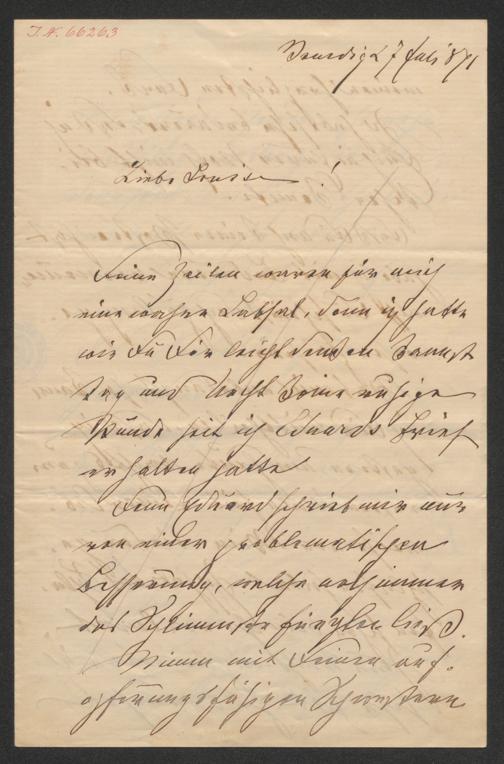 I.N. 66263
Venedig 27 Juli 871
Liebe Louise!
Deine Zeilen waren für mich
eine wahre Labsal, denn ich hatte
wie Du Dir leicht denken kannst
Tag und Nacht keine ruhige
Stunde seit ich Eduards Brief
erhalten hatte
Denn Eduard schrieb mir nur
von einer problematischen
Besserung, welche noch immer
das Schlimmste fürchten ließ.
Nimm mit Deinen auf-
opferungsfähigen Schwestern